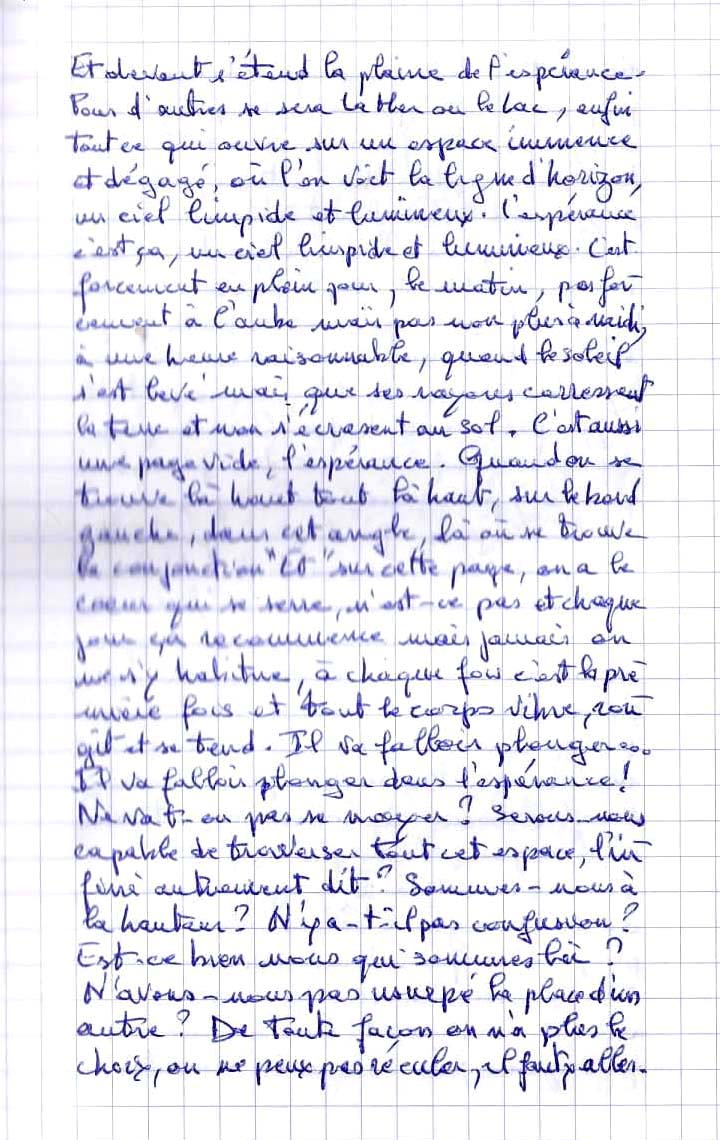 Et devant s'étend la plaine de l'espérance.
Pour d'autres se sera la Mer ou le lac, enfin
tout ce qui ouvre sur un espace immence
et dégagé, où l'on voit la ligne d'horizon,
un ciel limpide et lumineux. L'espérance
c'est ça, un ciel limpide et lumineux. C'est
forcement en plein jour, le matin, pas for
cement à l'aube mais pas non plus à midi,
à une heure raisonnable, quand le soleil
s'est levé mais que ses rayons carressent
la terre et non s'écrasent au sol. C'est aussi
une page vide, l'espérance. Quand on se
trouve là haut tout là haut, sur le bord
gauche, dans cet angle, là où se trouve
la conjonction "Et" sur cette page, on a le
coeur qui se serre, n'est-ce pas et chaque
jour ça recommence mais jamais on
ne s'y habitue, à chaque fois c'est la pre
mière fois et tout le corps vibre, rou
git et se tend. Il va falloir plonger...
Il va falloir plonger dans l'espérance!
Ne va t-on pas se noyer? Serons-nous
capable de traverser tout cet espace, l'in
fini autrement dit? Sommes-nous à
la hauteur? N'y a-t-il pas confusion?
Est-ce bien nous qui sommes là?
N'avons-nous pas usurpé la place d'un
autre? De toute façon on n'a plus le
choix, on ne peux pas réculer, il faut y aller.